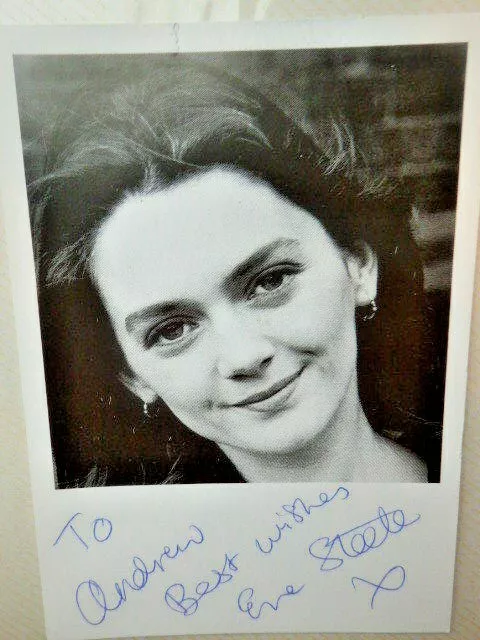 To
Andrew
Best wishes
Eve Steele
X